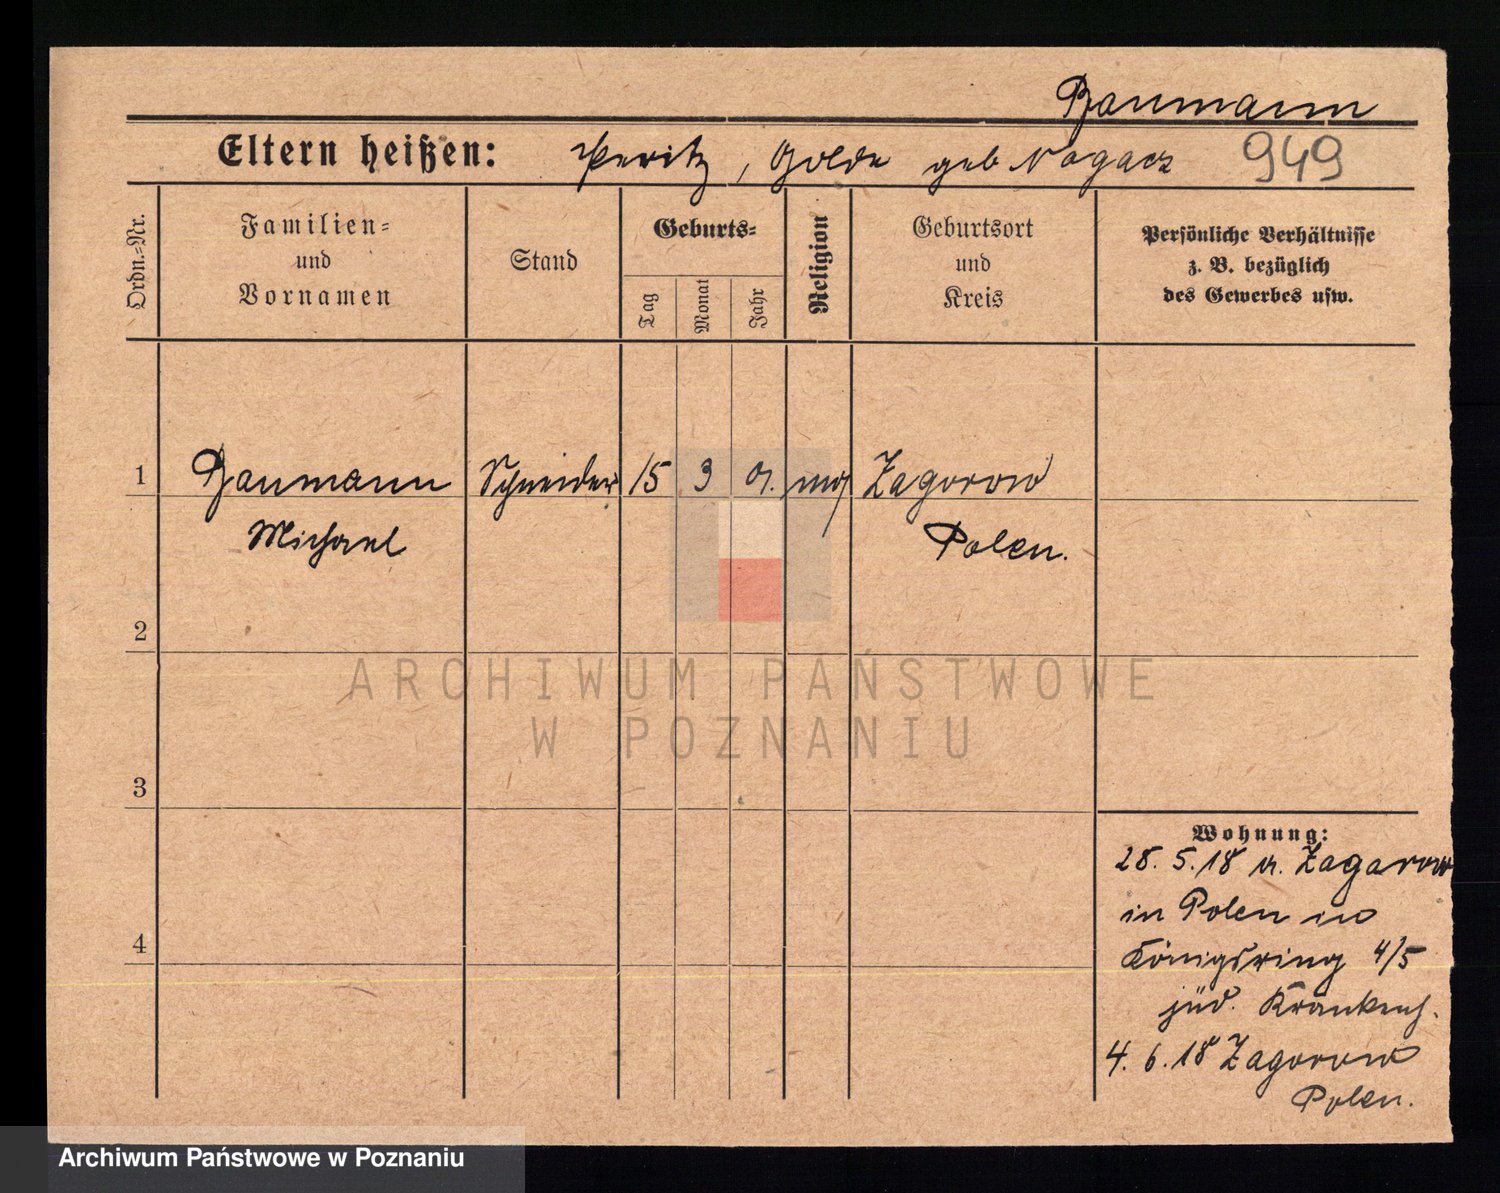 Baumann
Eltern heißen: Peritz, Golde geb Nogacz 949
Ordn.-Nr.
Familien-
und
Vornamen
Stand
Geburts-
Tag
Monat
Jahr
Religion
Geburtsort
und
Kreis
Persönliche Verhältnisse
z. B. bezüglich
des Gewerbes usw.
1 Baumann Schneider 15 3 01. mos Zagorow
Michael Polen.
2
3
4
Wohnung:
28. 5. 18 v. Zagarow
in Polen in
Königsring 4/5
jüd. Krankenh.
4. 6. 18 Zagorow
Polen.
ARCHIWUM PAŃSTWOWE
W POZNANIU
Archiwum Państwowe w Poznaniu